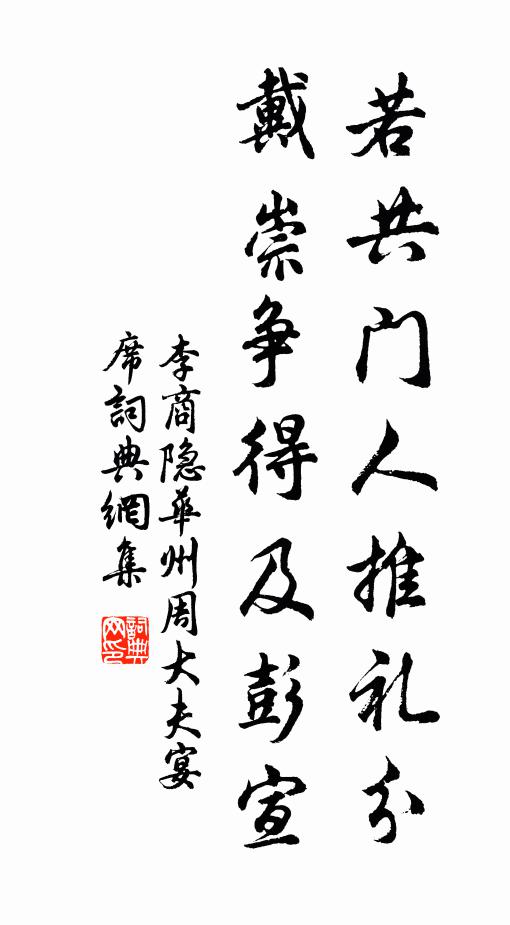 若共门人推礼分
戴崇争得及彭宣
李商隐华州周大夫宴
席詞典網集
詞典网印